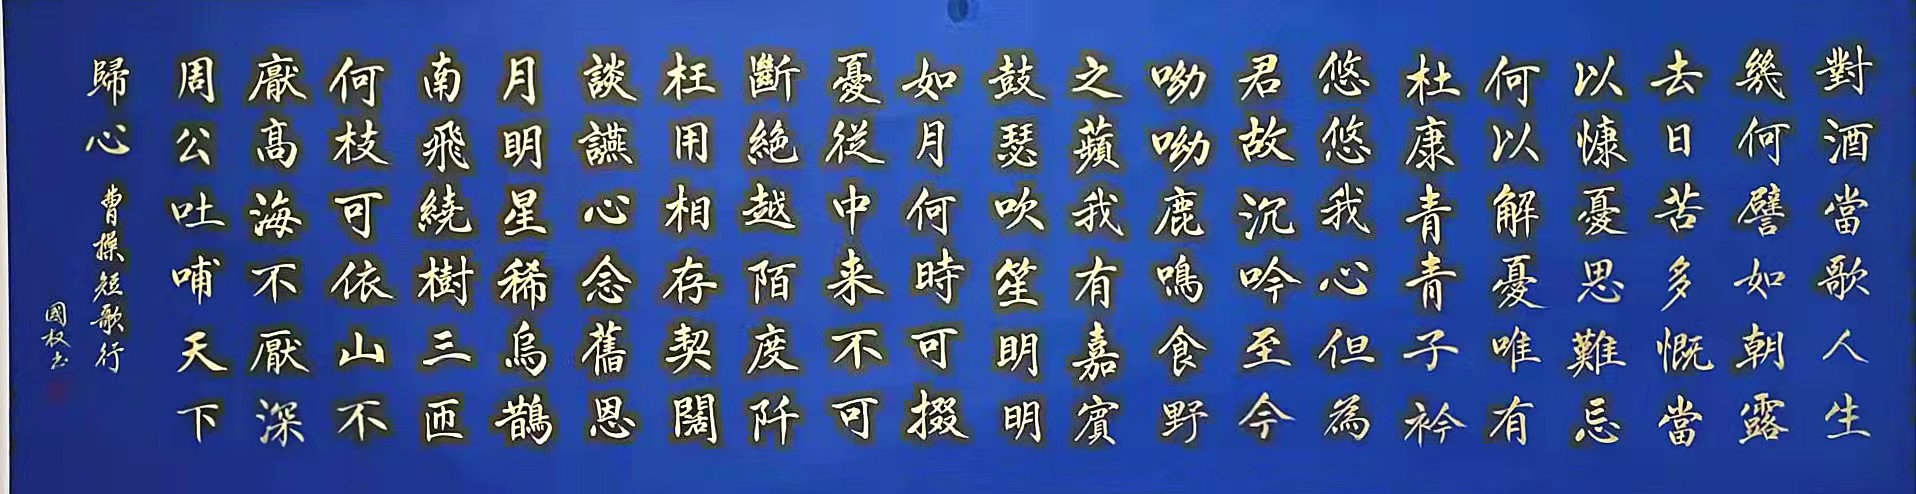 對酒當歌人生
幾何譬如朝露
去日苦多慨當
以慷憂思難忘
何以解憂唯有
杜康青青子衿
悠悠我心但為
君故沉吟至今
呦呦鹿鳴食野
之蘋我有嘉賓
鼓瑟吹笙明明
如月何時可掇
憂從中来不可
斷絕越陌度阡
枉用相存契闊
談讌心念舊恩
月明星稀烏鵲
南飛繞樹三匝
何枝可依山不
厭高海不厭深
周公吐哺天下
歸心
曹操短歌行
國权书